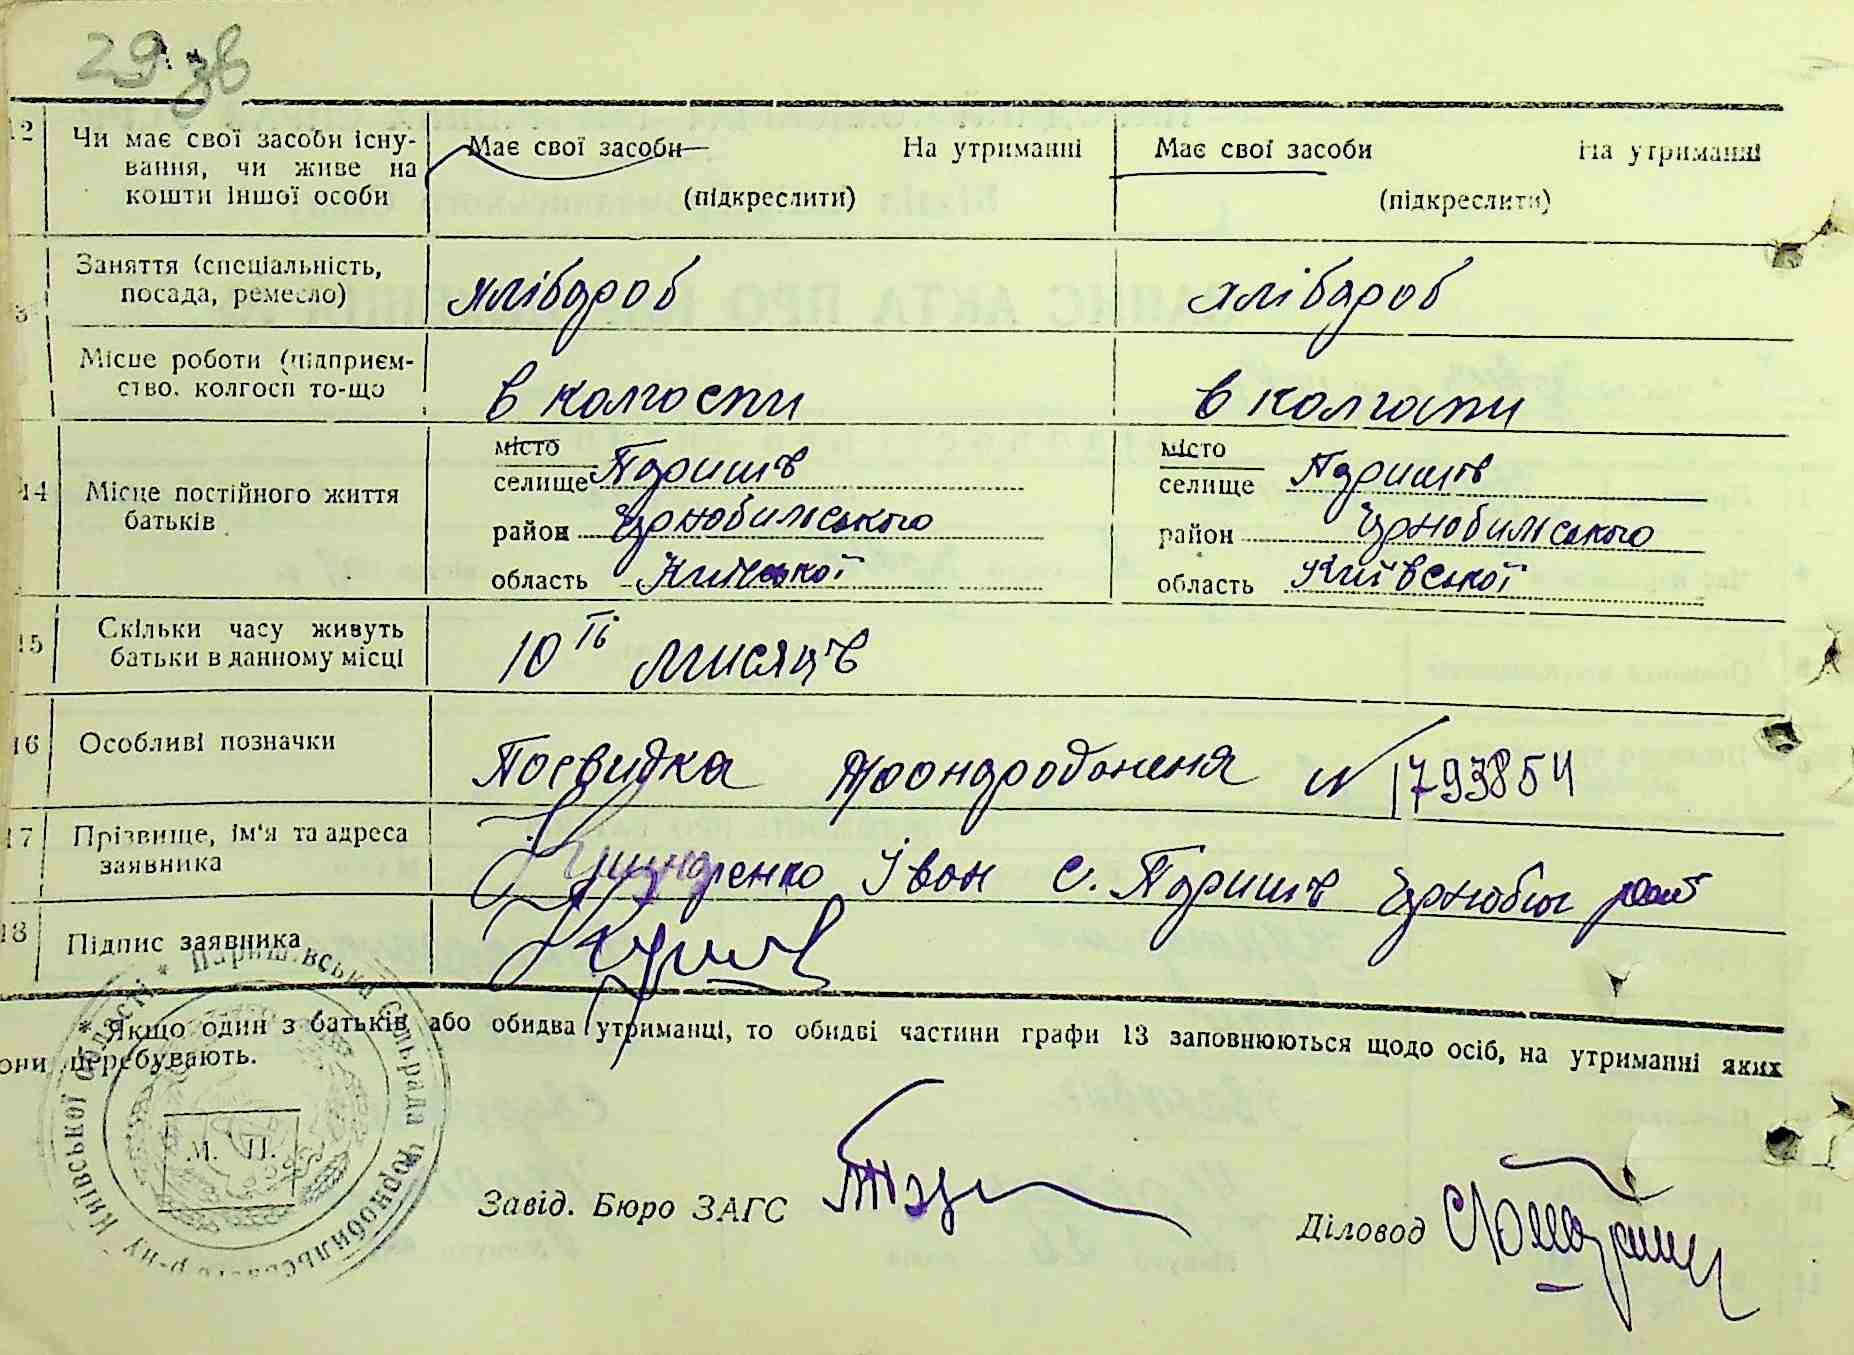 29 зв
12 Чи має свої засоби існу- Має свої засоби На утриманні Має свої засоби На утриманні
вання, чи живе на
кошти іншої особи (підкреслити) (підкреслити)
Заняття (спеціальність,
посада, ремесло) хлібароб хлібароб
Місце роботи (підприєм-
ство. колгосп то-що в колгоспи в колгоспи
місто Паришів місто Паришів
14 Місце постійного життя селище селище
батьків район Чорнобильського район Чорнобильського
область Київської область Київської
15 Скільки часу живуть
батьки в данному місці 10 ті мисяців
16 Особливі позначки Посвидка N 1793854
17 Прізвище, ім'я та адреса
заявника Іван с. Паришів Чорнобил
18 Підпис заявника
Якщо один з батьків або обидва утриманці, то обидві частини графи 13 заповнюються щодо осіб, на утриманні яких
они перебувають.
* Паришівська сільрада Чорнобильського р-ну Київської області *
М. П.
Завід. Бюро ЗАГС
Діловод